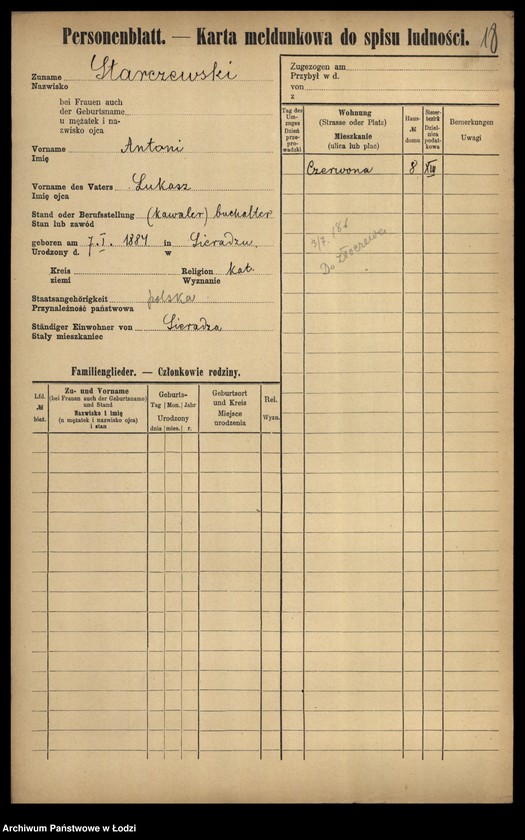 Personenblatt. — Karta meldunkowa do spisu ludności. 18
Zuname Starczewski
Nazwisko
bei Frauen auch
der Geburtsname
u mężatek i na-
zwisko ojca
Vorname Antoni
Imię
Vorname des Vaters Łukasz
Imię ojca
Stand oder Berufsstellung (kawaler) buchalter
Stan lub zawód
geboren am 7. I. 1884 in Sieradzu.
Urodzony d. w
Kreis Religion kat.
ziemi Wyznanie
Staatsangehörigkeit polska
Przynależność państwowa
Ständiger Einwohner von Sieradza
Stały mieszkaniec
Familienglieder. — Członkowie rodziny.
Lfd. № bież.
Zu- und Vorname
(bei Frauen auch der Geburtsname)
und Stand
Nazwisko i imię
(u mężatek i nazwisko ojca)
i stan
Geburts-
Tag Mon. Jahr
Urodzony
dnia mies. r.
Geburtsort
und Kreis
Miejsce
urodzenia
Rel.
Wyzn.
Zugezogen am
Przybył w d.
von
z
Tag des
Um-
zuges
Dzień
prze-
prowadzki
Wohnung
(Strasse oder Platz)
Mieszkanie
(ulica lub plac)
Haus-
№
domu
Steuer-
bezirk
Dziel-
nica
podat-
kowa
Bemerkungen
Uwagi
Czerwona 8 XIII
3/7. 18
Do Złoczewa
Archiwum Państwowe w Łodzi